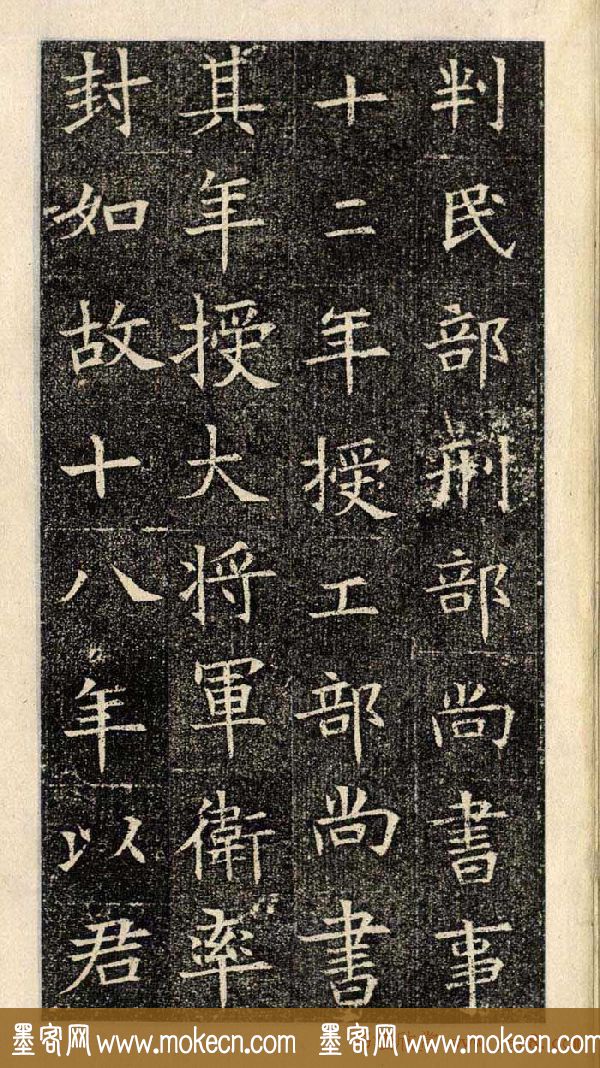 判民部刑部尚書事
十二年授工部尚書
其年授大将軍衛率
封如故十八年以君
墨客网 www.mokecn.com 墨客网 www.mokecn.com